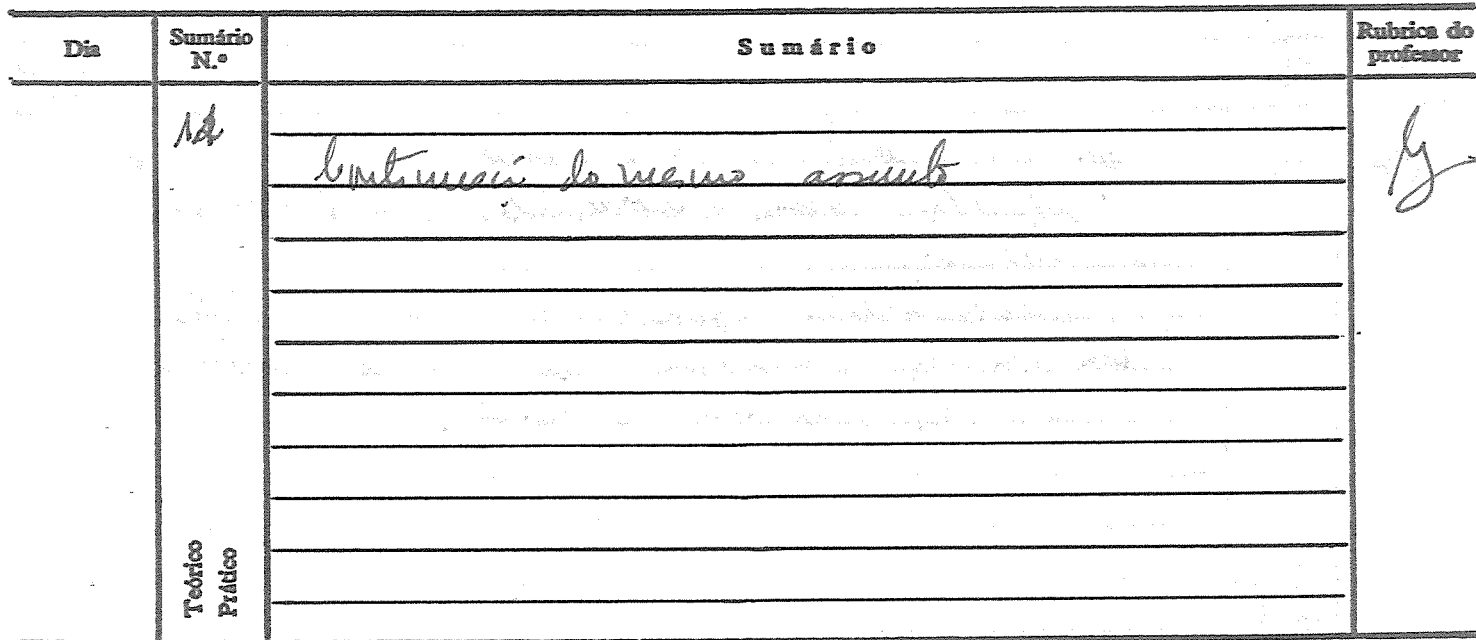 Dia
Sumário N.º
Sumário
Rubrica do professor
Continuação do mesmo assunto
Teórico
Prático